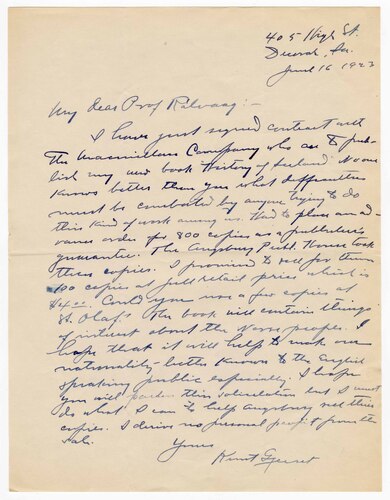 405 High St.
Decorah, Ia.
June 16, 1923
My dear Prof Rølvaag:-
I have just signed contract with
The Macmillan Company who are to pub-
lish my new book History of Iceland. No one
knows better than you what difficulties
must be combated by anyone trying to do
this kind of work among us. Had to place an ad-
vance order for 800 copies as a publisher's
guarantee. The Augsburg Publ. House took
these copies. I promised to sell for them
100 copies at full retail price which is
$4.00. Could you use a few copies at
St. Olaf? The book will contain things
of interest about the Norse peoples. I
hope that it will help to make our
nationality better known to the English
speaking public especially. I hope
you will pardon this solicitation but I must
do what I can to help Augsburg sell these
copies. I derive no personal profit from the
sale.
Yours
Knut Gjerset